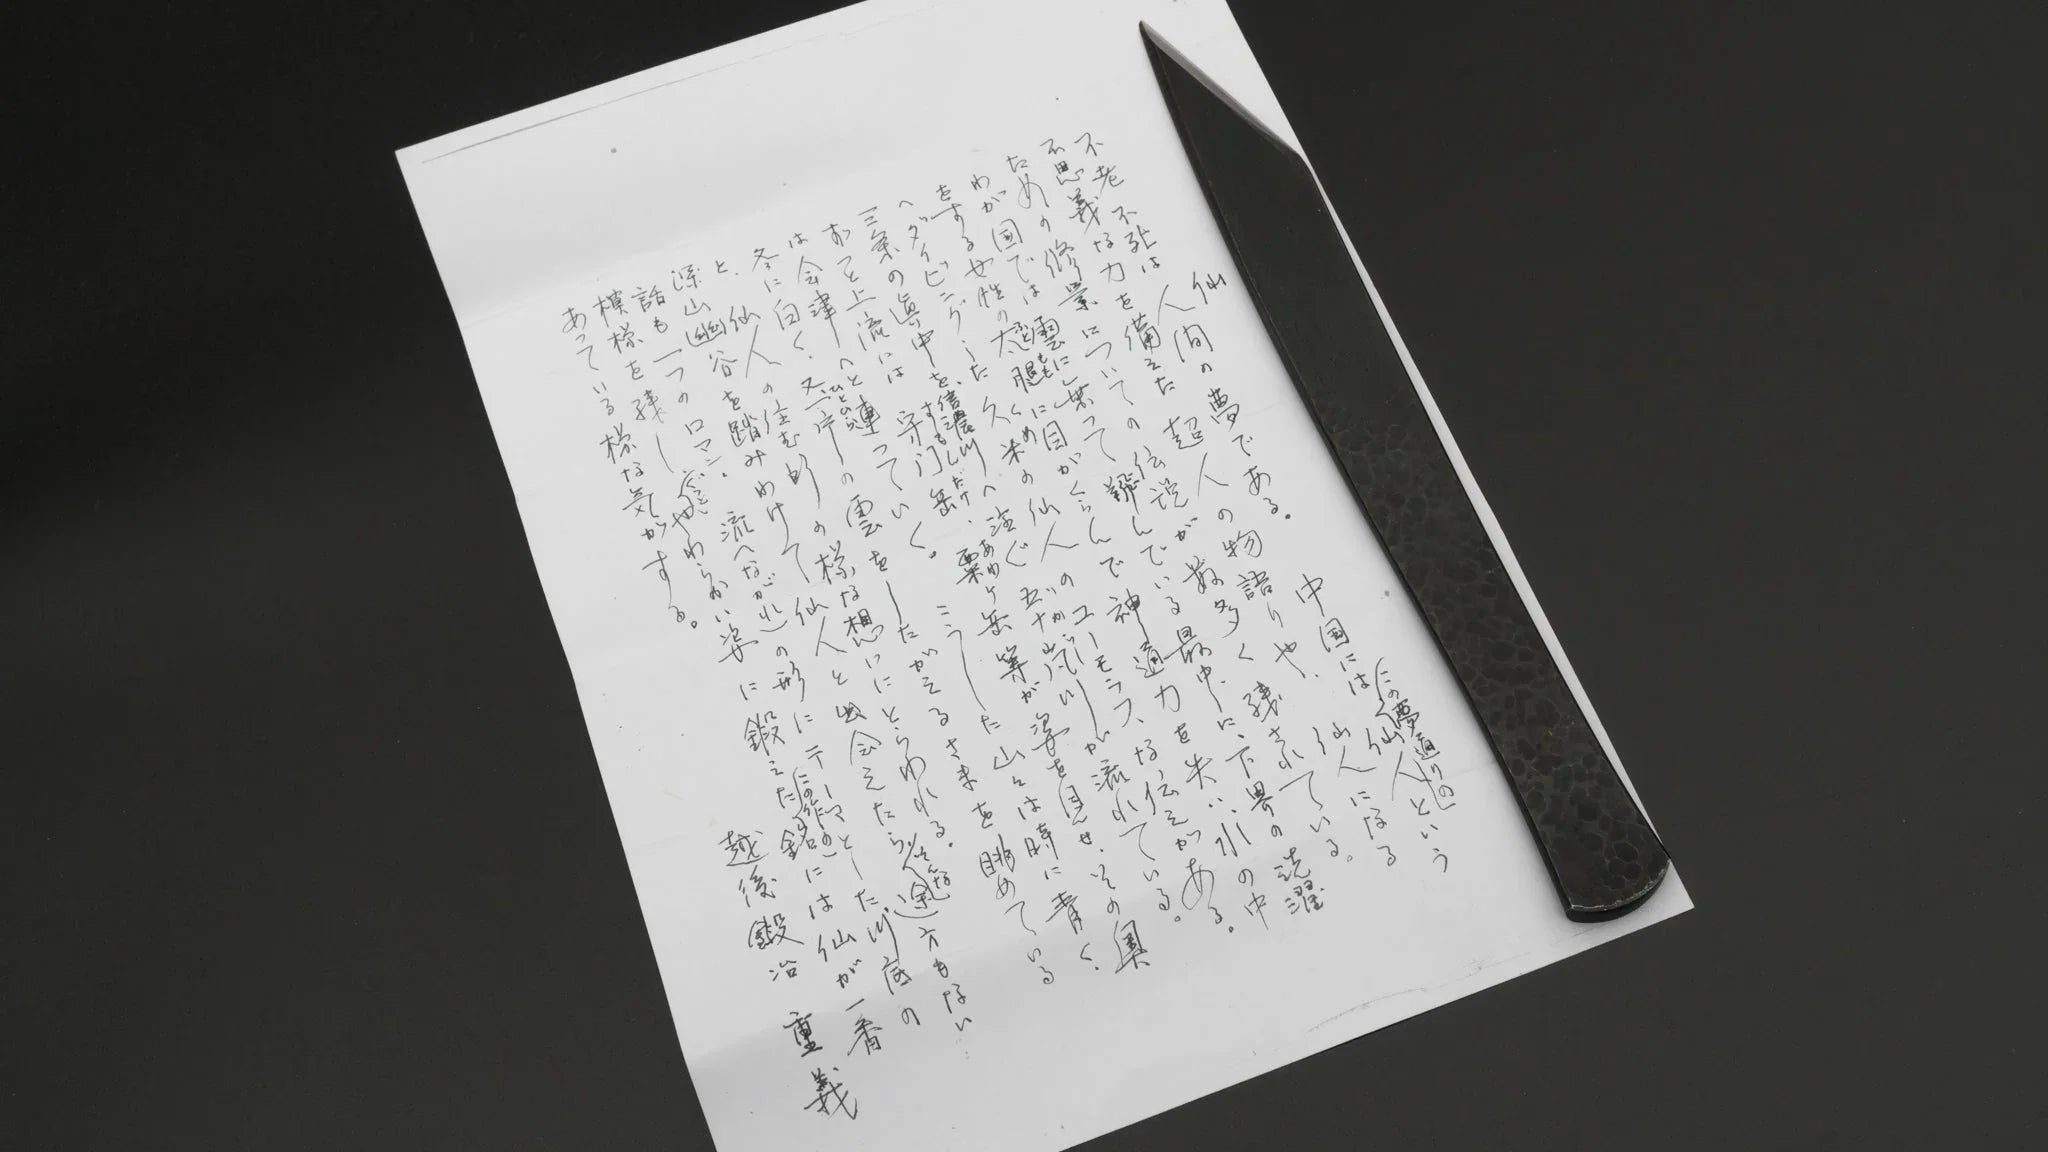 仙
不老不死は人間の夢である。中国には「この夢通りの」仙人という
不思議な力を備えた超人の物語りや、仙人になる
ための修業についての伝説が数多く残されている。
わが国では雲に乗って翔んでいる最中に、下界の洗濯
をする女性の太腿に目がくらんで神通力を失い水の中
へダイビングした久米の仙人のユーモラスな伝えがある。
三条の真中を、信濃川へ注ぐ五十嵐川が流れている。
ずっと上流には守門岳、粟ヶ岳等が姿を見せ、その奥
は会津へと連っていく。こうした山々は時に青く、
冬に白く、又一片の雲をしたがえるさまを眺めている
と、仙人の住む所の様な想いにとらわれる。
深山幽谷を踏みわけて仙人と出会えたら、そんな途方もない…
話も一つのロマン。流れ(ながれ)の形にテーマとした川底の
模様を残しやわらかい姿に鍛えた(この作の)銘には仙が一番
あっている様な気がする。
越後鍛冶 重義